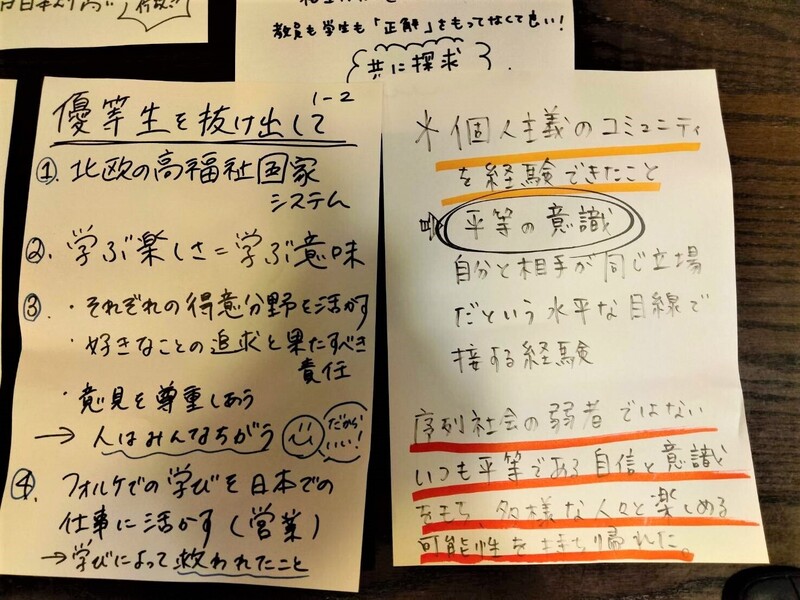 教員も学生も「正解」をもってなくて良い!
共に探求
優等生を抜け出して
1-2
①. 北欧の高福祉国家
システム
②. 学ぶ楽しさ=学ぶ意味
③ ・それぞれの得意分野を活かす
・好きなことの追求と果たすべき
責任
・意見を尊重しあう
→ 人はみんなちがう
だから
いい!
④. フォルケでの学びを日本での
仕事に活かす(営業)
→学びによって救われたこと
*個人主義のコミュニティ
を経験できたこと
⇒ 平等の意識
自分と相手が同じ立場
だという水平な目線で
接する経験
序列社会の弱者ではない
いつも平等である自信と意識
をもち、多様な人々と楽しめる
可能性を持ち帰れた。